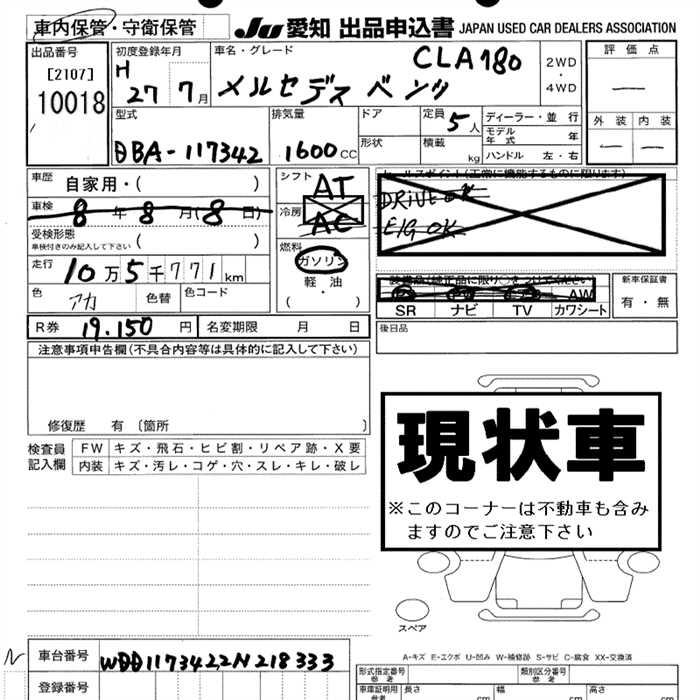 車内保管・守衛保管
JU 愛知 出品申込書 JAPAN USED CAR DEALERS ASSOCIATION
出品番号
[2107]
10018
初度登録年月
H 27 7月
車名・グレード
メルセデス ベンツ
CLA180
2WD
・
4WD
評価点
外装 内装
型式
DBA-117342
排気量
1600cc
ドア
形状
定員
5人
積載
kg
ディーラー・並行
モデル年式 年
ハンドル 左・右
車歴
自家用・( )
シフト
AT
冷房
AC
セールスポイント(正常に機能するものに限ります)
DRIVE OK
E/G OK
車検
8年8月(8日)
受検形態
車検付きのみ記入して下さい ( )
燃料
ガソリン
軽油
・
( )
走行
10万5千771km
色
アカ
色替
色コード
装備品(純正品に限り○をつけてください)
SR ナビ TV AW カワシート
新車保証書
有・無
R券 19.150円
名変期限 月 日
後日品
注意事項申告欄(不具合内容等は具体的に記入して下さい)
修復歴 有 〔箇所 〕
検査員記入欄
FW キズ・飛石・ヒビ割・リペア跡・X要
内装 キズ・汚レ・コゲ・穴・スレ・キレ・破レ
現状車
※このコーナーは不動車も含み
ますのでご注意下さい
スペア
A-キズ E-エクボ U-凹み W-補修跡 S-サビ C-腐食 XX-交換済
N 車台番号 WDD1173422N218333
登録番号
形式指定番号
参考
類別区分番号
参考
車庫証明用
参考
長さ cm
幅 cm
高さ cm